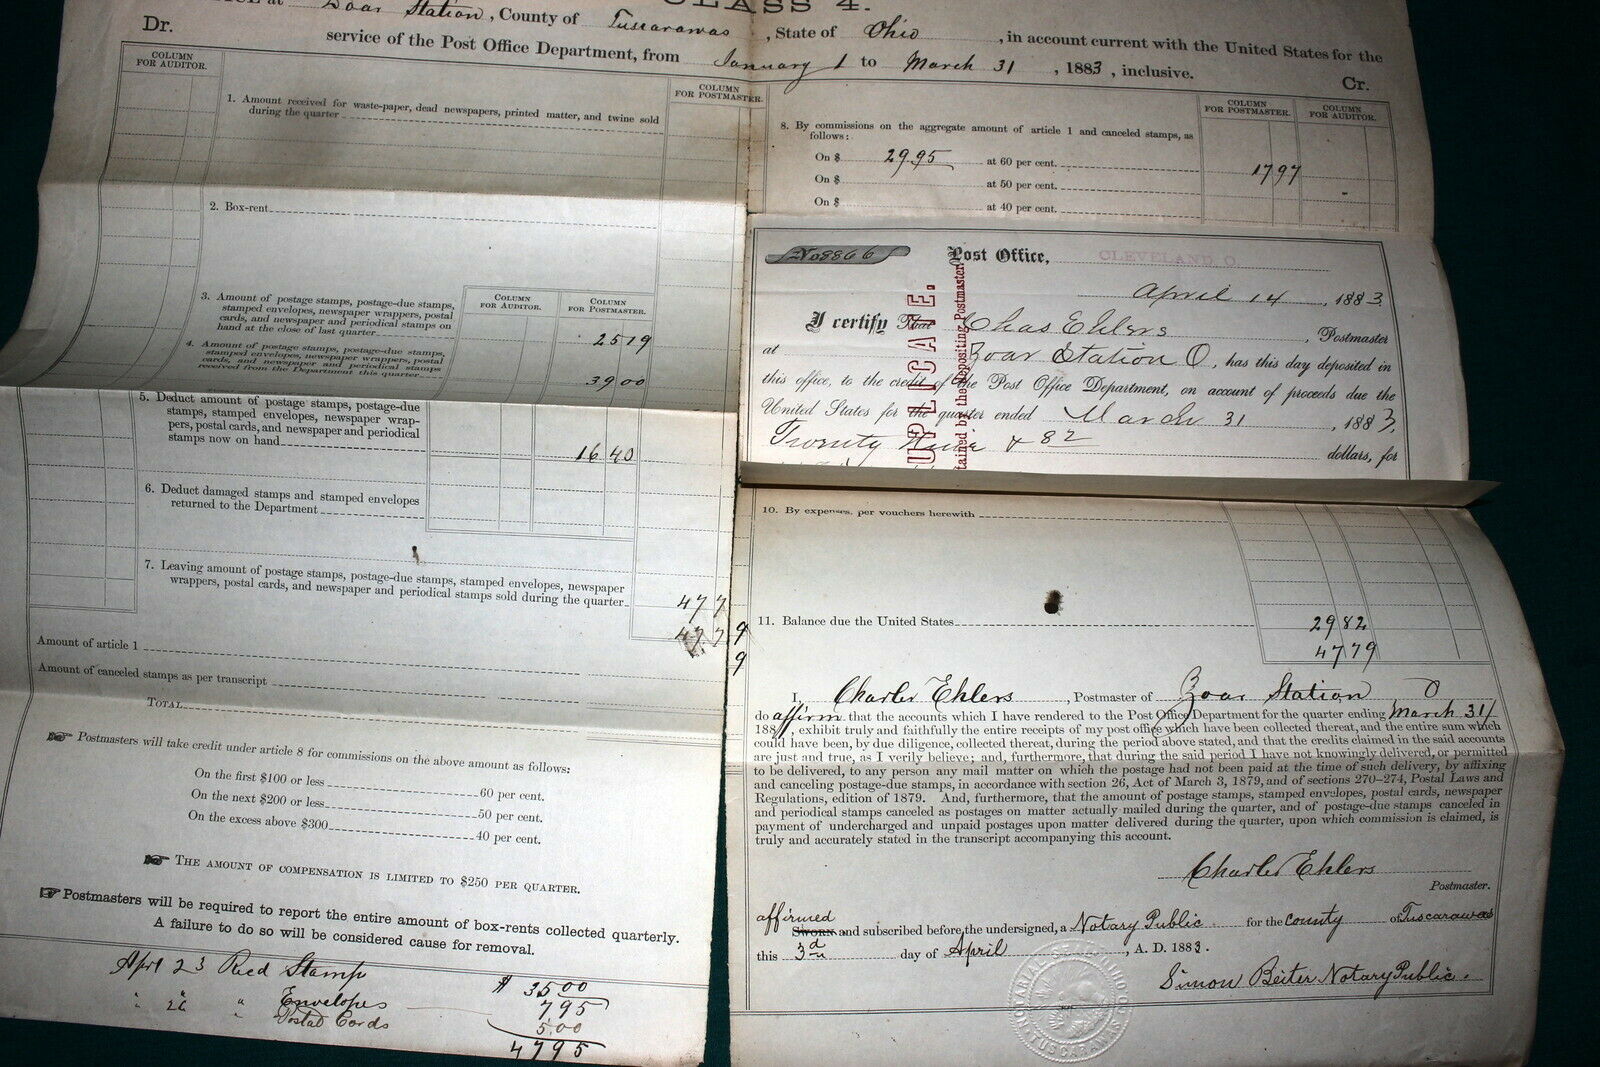 CLASS 4.
at Zoar Station, County of Tuscarawas, State of Ohio, in account current with the United States for the
Dr. service of the Post Office Department, from January 1 to March 31, 1883, inclusive. Cr.
COLUMN FOR AUDITOR.
COLUMN FOR POSTMASTER.
1. Amount received for waste-paper, dead newspapers, printed matter, and twine sold
during the quarter
2. Box-rent
COLUMN FOR AUDITOR.
COLUMN FOR POSTMASTER.
3. Amount of postage stamps, postage-due stamps,
stamped envelopes, newspaper wrappers, postal
cards, and newspaper and periodical stamps on
hand at the close of last quarter 25 19
4. Amount of postage stamps, postage-due stamps,
stamped envelopes, newspaper wrappers, postal
cards, and newspaper and periodical stamps
received from the Department this quarter 39 00
5. Deduct amount of postage stamps, postage-due
stamps, stamped envelopes, newspaper wrap-
pers, postal cards, and newspaper and periodical
stamps now on hand 16 40
6. Deduct damaged stamps and stamped envelopes
returned to the Department
7. Leaving amount of postage stamps, postage-due stamps, stamped envelopes, newspaper
wrappers, postal cards, and newspaper and periodical stamps sold during the quarter 47 79
47 79
Amount of article 1
Amount of canceled stamps as per transcript
TOTAL
Postmasters will take credit under article 8 for commissions on the above amount as follows:
On the first $100 or less 60 per cent.
On the next $200 or less 50 per cent.
On the excess above $300 40 per cent.
THE AMOUNT OF COMPENSATION IS LIMITED TO $250 PER QUARTER.
Postmasters will be required to report the entire amount of box-rents collected quarterly.
A failure to do so will be considered cause for removal.
Aprl 23 Recd Stamp $ 35.00
" 26 " Envelopes 7 95
" Postal Cards 5.00
47 95
COLUMN FOR POSTMASTER.
COLUMN FOR AUDITOR.
8. By commissions on the aggregate amount of article 1 and canceled stamps, as
follows:
On $ 29.95 at 60 per cent. 17 97
On $ at 50 per cent.
On $ at 40 per cent.
No 8866 Post Office, CLEVELAND O.
April 14, 1883
I certify That Chas Ehlers, Postmaster
at Zoar Station O, has this day deposited in
this office, to the credit of the Post Office Department, on account of proceeds due the
United States for the quarter ended March 31, 1883,
Twenty Nine & 82 dollars, for
UPLICATE.
tained by the Depositing Postmaster
10. By expenses, per vouchers herewith
11. Balance due the United States 29 82
47 79
I, Charles Ehlers, Postmaster of Zoar Station O
do affirm that the accounts which I have rendered to the Post Office Department for the quarter ending March 31/
188, exhibit truly and faithfully the entire receipts of my post office which have been collected thereat, and the entire sum which
could have been, by due diligence, collected thereat, during the period above stated, and that the credits claimed in the said accounts
are just and true, as I verily believe; and, furthermore, that during the said period I have not knowingly delivered, or permitted
to be delivered, to any person any mail matter on which the postage had not been paid at the time of such delivery, by affixing
and canceling postage-due stamps, in accordance with section 26, Act of March 3, 1879, and of sections 270–274, Postal Laws and
Regulations, edition of 1879. And, furthermore, that the amount of postage stamps, stamped envelopes, postal cards, newspaper
and periodical stamps canceled as postages on matter actually mailed during the quarter, and of postage-due stamps canceled in
payment of undercharged and unpaid postages upon matter delivered during the quarter, upon which commission is claimed, is
truly and accurately stated in the transcript accompanying this account.
Charles Ehlers
Postmaster.
affirmed
Sworn and subscribed before the undersigned, a Notary Public for the County of Tuscarawas
this 3rd day of April, A. D. 1883.
Simon Beiter Notary Public.